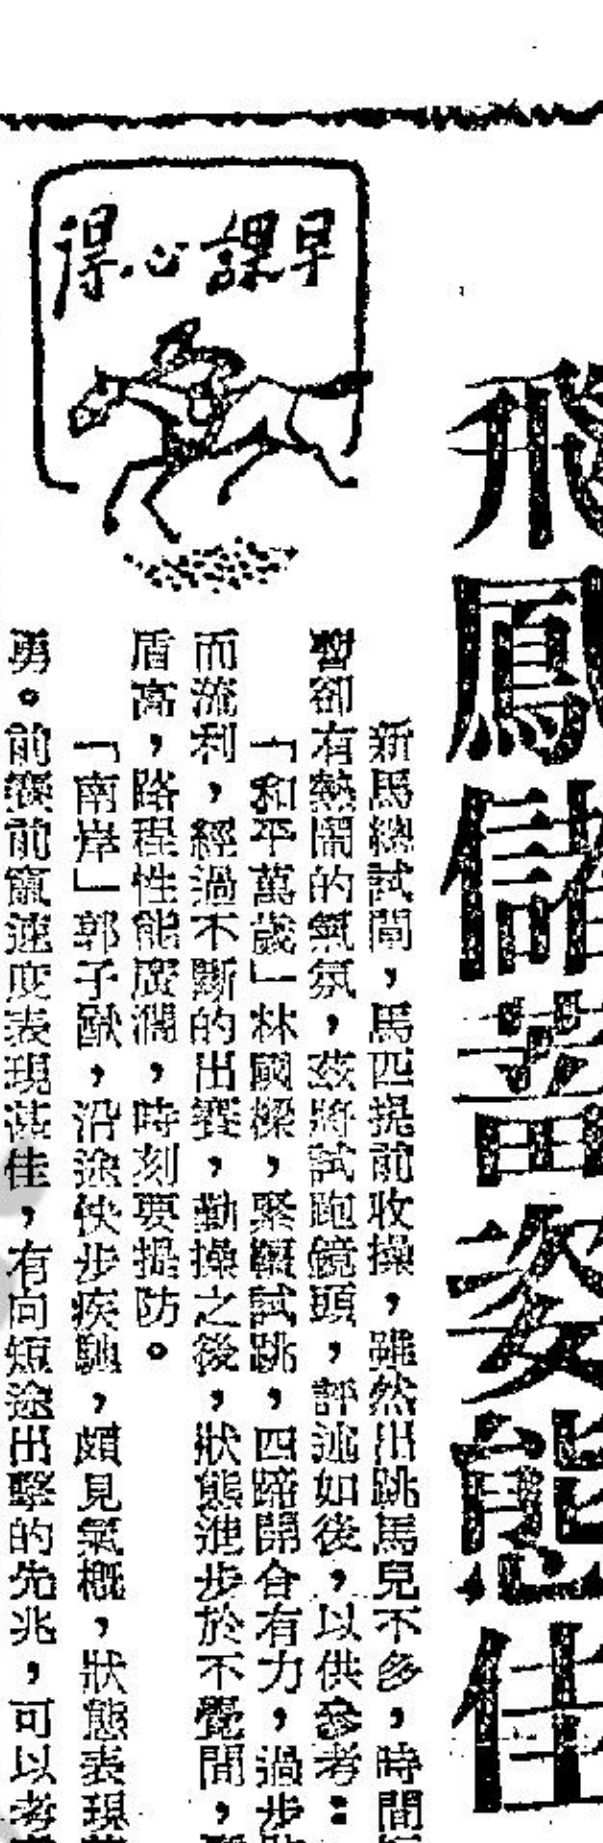 飛鳳儲蓄姿態佳
早課心得
新馬總試閘，馬匹提前收操，雖然出跳馬兒不多，時間
暫卻有熱鬧的氣氛，茲將試跑鏡頭，評述如後，以供參考：
「和平萬歲」林國樑，緊韁試跳，四蹄開合有力，過步
而流利，經過不斷的出賽，勤操之後，狀態進步於不覺間，
盾高，路程性能廣濶，時刻要提防。
「南岸」郭子猷，沿途快步疾馳，頗見氣概，狀態表現
勇。前賽前竄速度表現甚佳，有向短途出擊的先兆，可以考